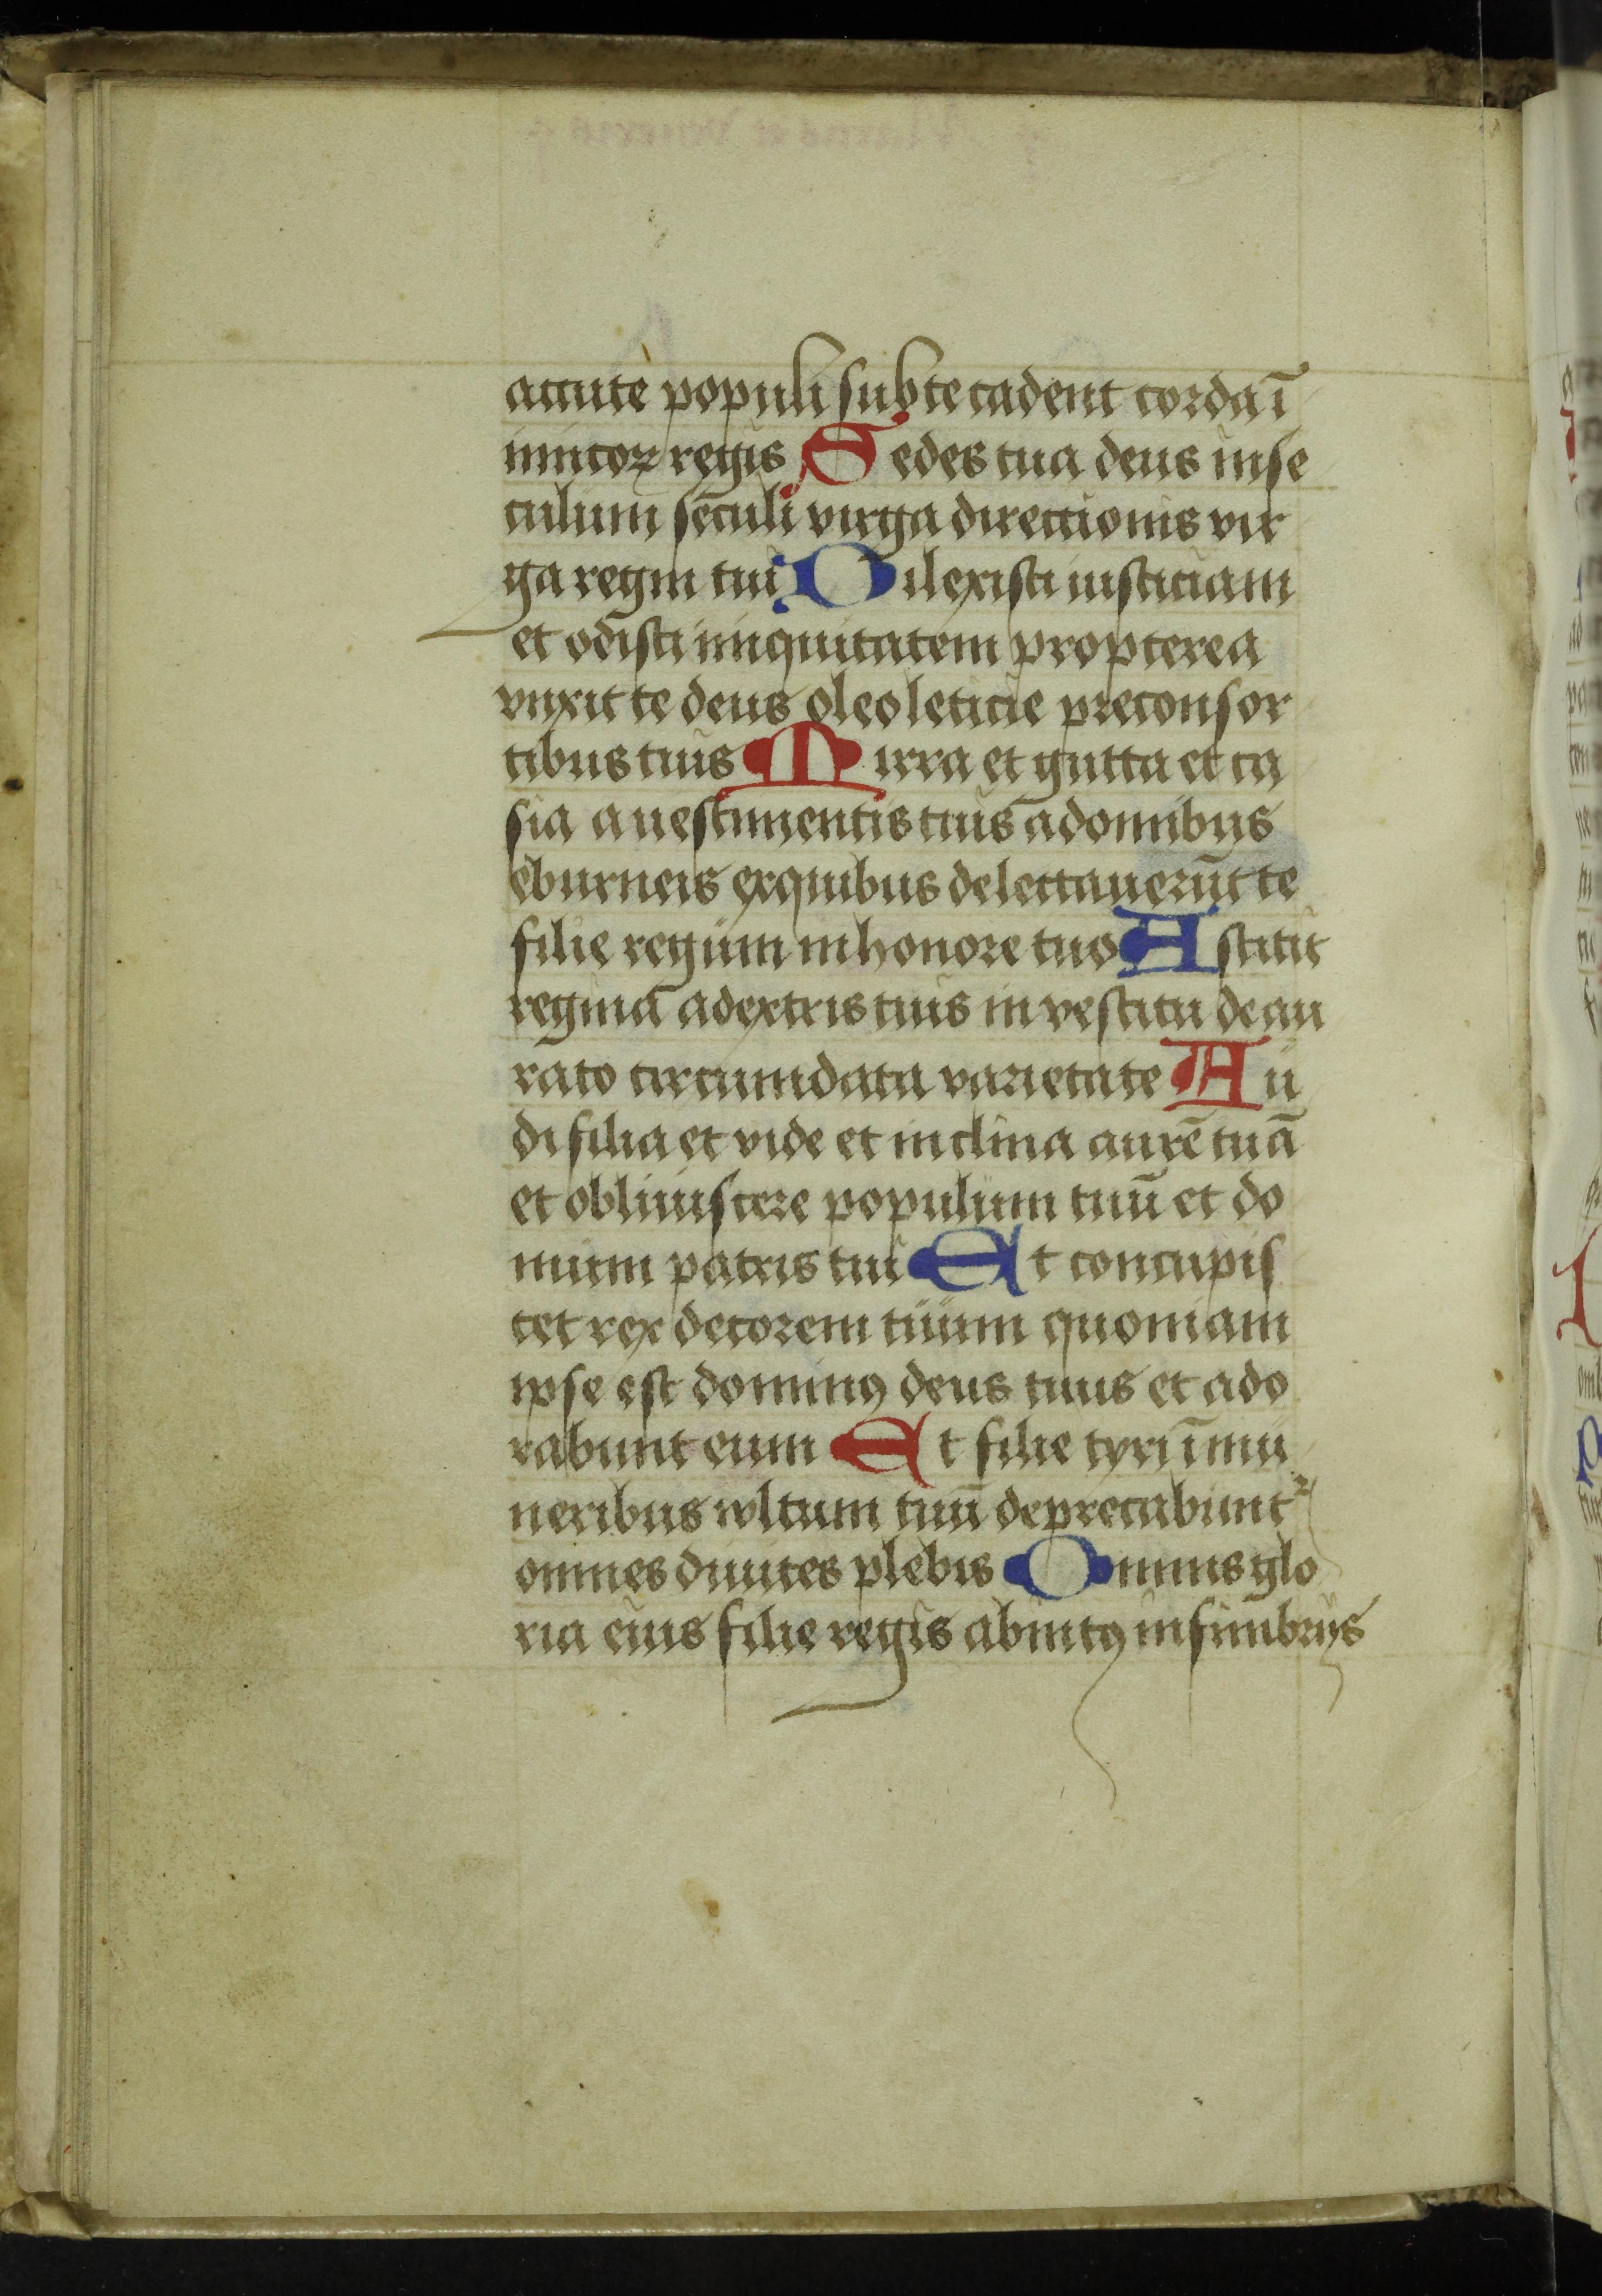 accute populi sub te cadent corda ī
imicoꝝ regis Sedes tua deus in se
culum seculi virga directionis vir
ga regni tui Dilexisti iusticiam
et odisti iniquitatem propterea
vnxit te deus oleo leticie pre consor
tibus tuis Mirra et gutta et ca
sia a uestimentis tuis a domibus
eburneis ex quibus delectauerūt te
filie regum in honore tuo Astitit
regina a dextris tuis in vestitu deau
rato circumdata varietate Au
di filia et vide et inclina aurē tuā
et obliuiscere populum tuū et do
mum patris tui Et concupis
cet rex decorem tuum quoniam
ipse est dominꝰ deus tuus et ado
rabunt eum Et filie tyri ī mu
neribus wltum tuū deprecabunt᷑
omnes diuites plebis Omnis glo
ria eius filie regis abintꝰ in fimbrijs